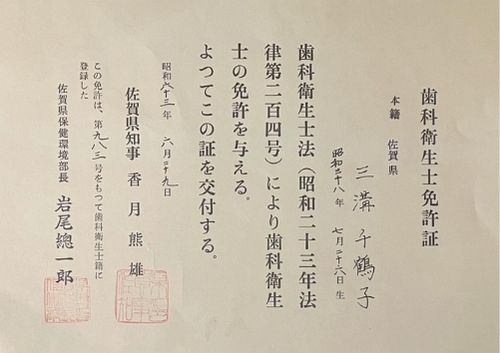 歯科衛生士免許証
本籍 佐賀県
三溝千鶴子
昭和三十八年 七月二十六日生
歯科衛生士法(昭和二十三年法
律第二百四号)により歯科衛生
士の免許を与える。
よつてこの証を交付する。
昭和六十三年 六月二十九日
佐賀県知事 香月熊雄
この免許は、第九八三号をもつて歯科衛生士籍に
登録した
佐賀県保健環境部長 岩尾總一郎